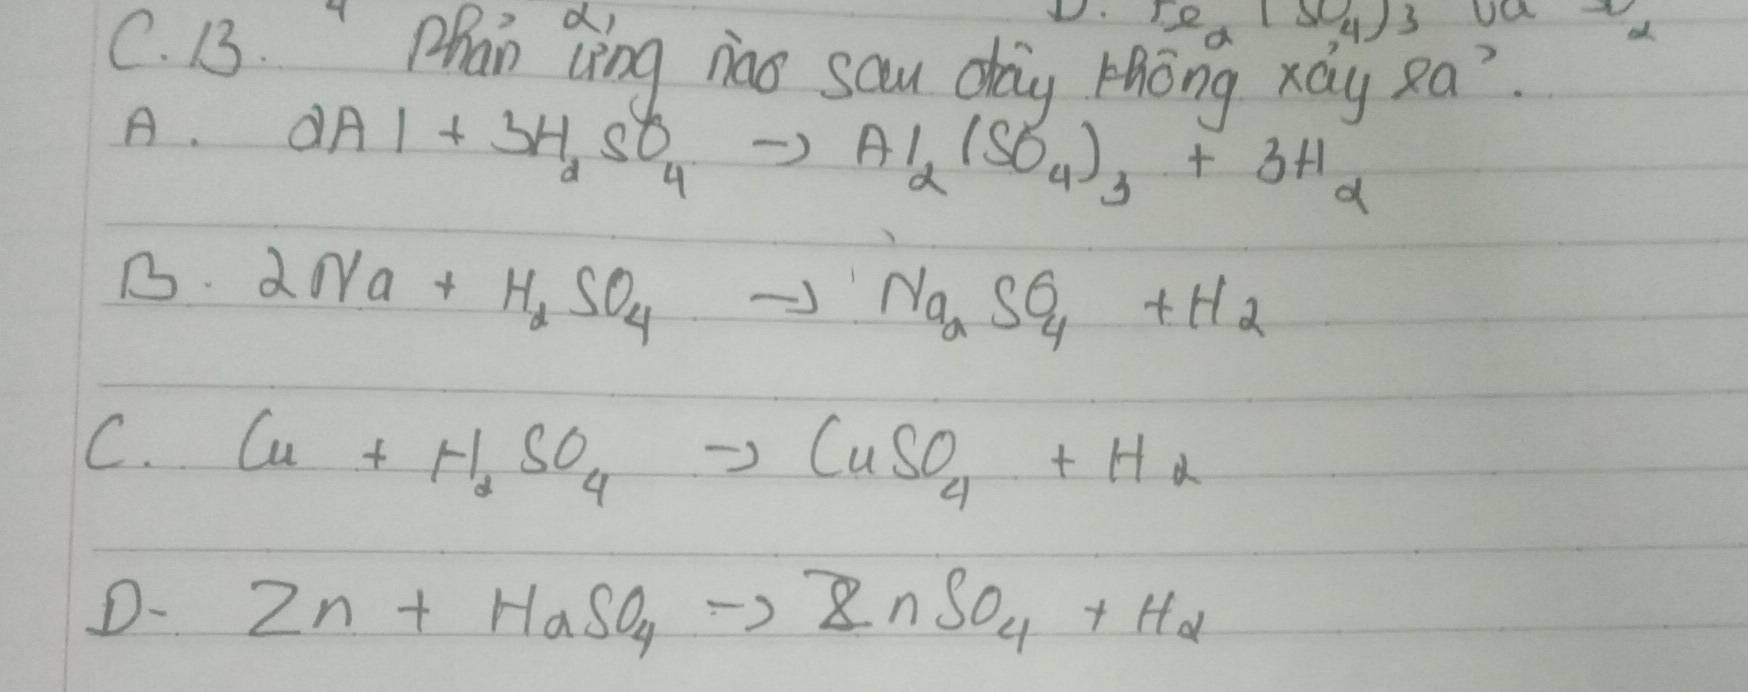 D. Fe₂(SO₄)₃ và
C.13. Phản ứng nào sau đây không xảy ra?.
A. 2Al + 3H₂SO₄ → Al₂(SO₄)₃ + 3H₂
B. 2Na + H₂SO₄ → Na₂SO₄ + H₂
C. Cu + H₂SO₄ → CuSO₄ + H₂
D- Zn + H₂SO₄ → ZnSO₄ + H₂